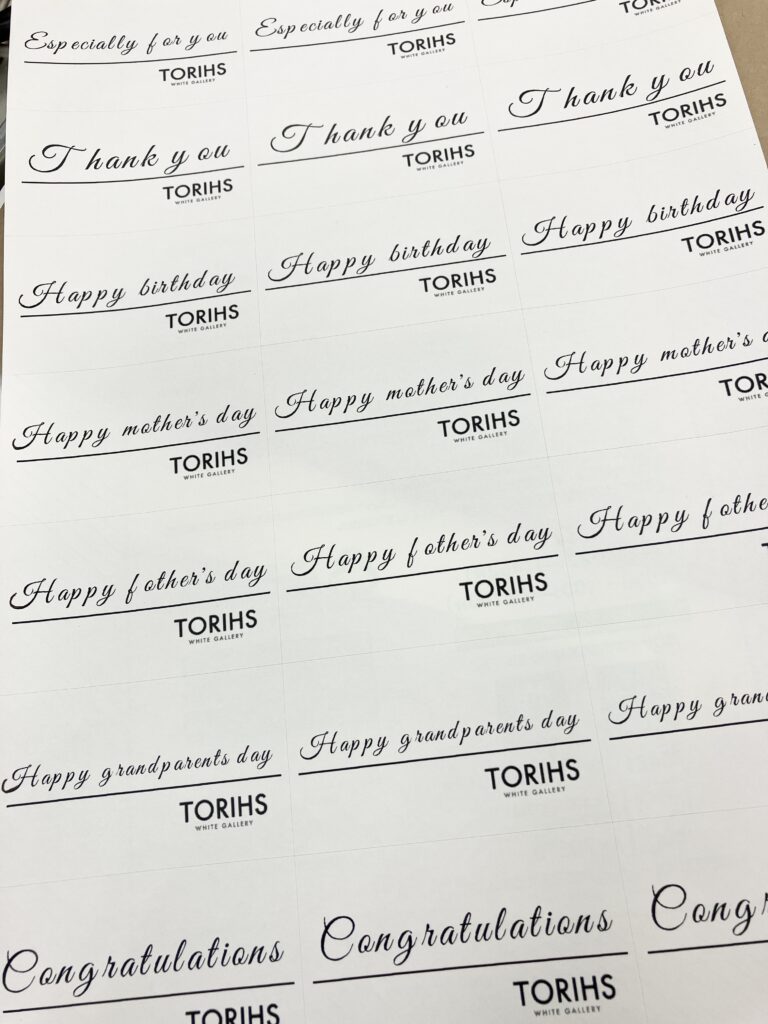 Especially for you
TORIHS
WHITE GALLERY
Especially for you
TORIHS
WHITE GALLERY
TORIHS
WHITE GALLERY
Thank you
TORIHS
WHITE GALLERY
Thank you
TORIHS
WHITE GALLERY
Thank you
TORIHS
WHITE GALLERY
Happy birthday
TORIHS
WHITE GALLERY
Happy birthday
TORIHS
WHITE GALLERY
Happy birthday
TORIHS
WHITE GALLERY
Happy mother's day
TORIHS
WHITE GALLERY
Happy mother's day
TORIHS
WHITE GALLERY
Happy mother's
TOR
Happy fother's day
TORIHS
WHITE GALLERY
Happy fother's day
TORIHS
WHITE GALLERY
Happy fothe
Happy grandparents day
TORIHS
WHITE GALLERY
Happy grandparents day
TORIHS
WHITE GALLERY
Happy gran
Congratulations
TORIHS
Congratulations
TORIHS
WHITE GALLERY
Cong